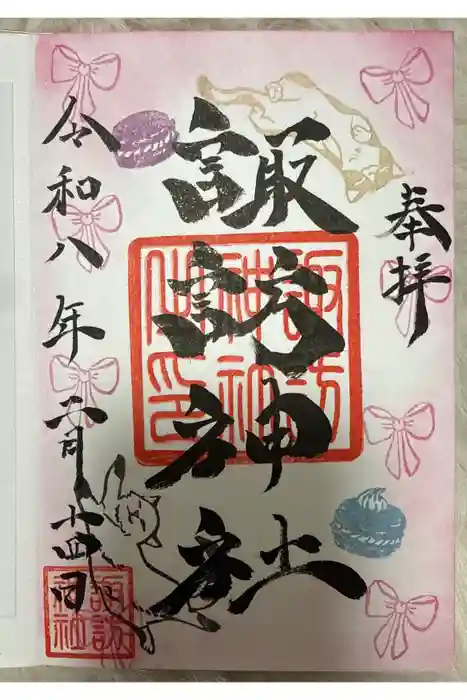 奉拝
諏訪神社
令和八年二月十四日
諏訪
神社
之印
諏訪
神社